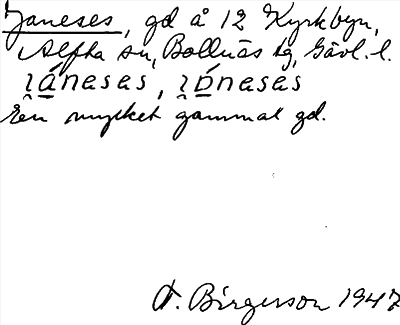 Janeses, gd å 12 Kyrkbyn,
Alfta sn, Bollnäs tg, Gävl. l.
En mycket gammal gd.
A. Birgerson 1947